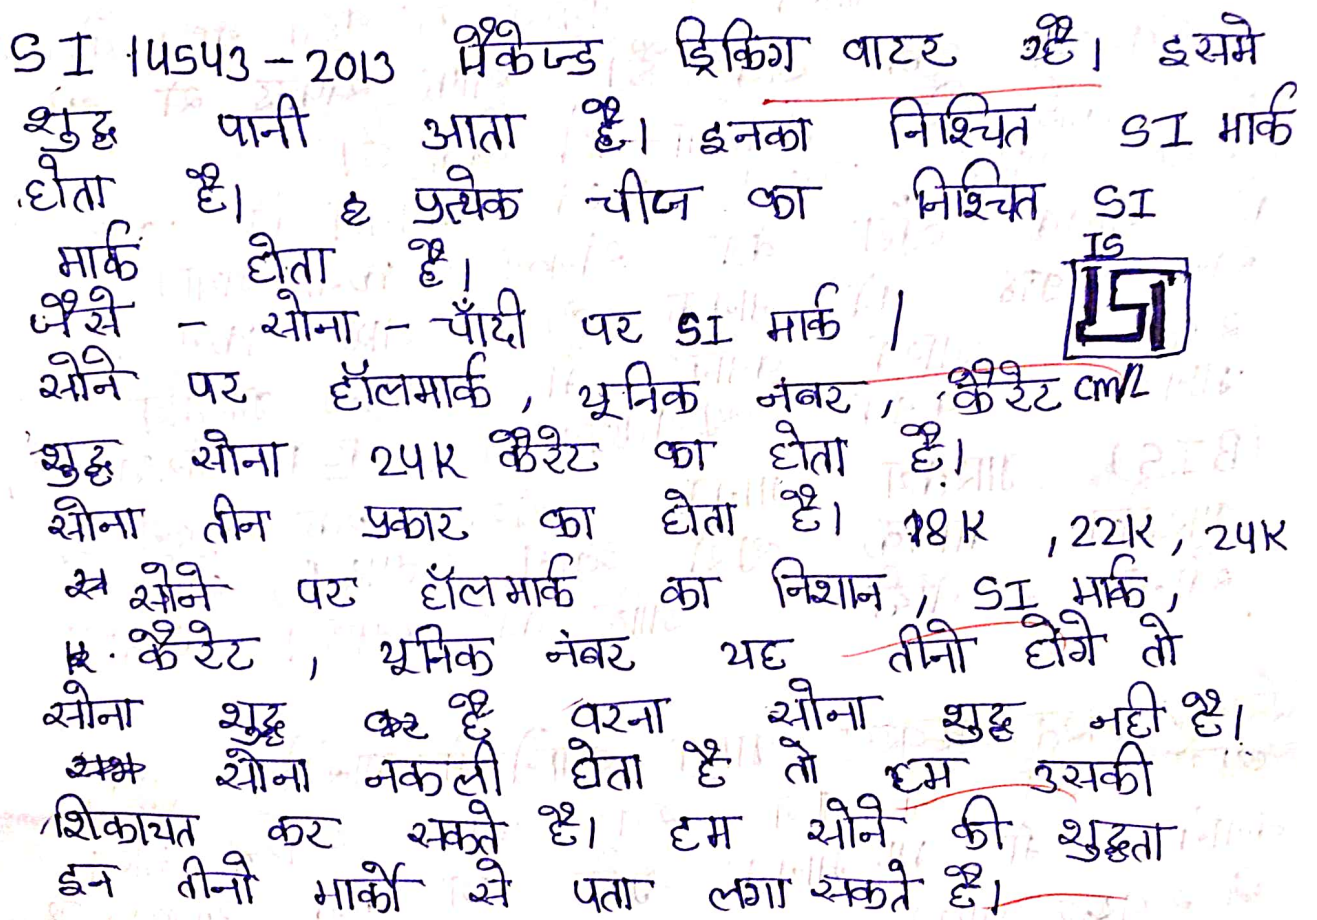 SI 14543-2013 पैकेज्ड ड्रिकिंग वाटर है। इसमे
शुद्ध पानी आता है। इनका निश्चित SI मार्क
होता है। प्रत्येक चीज का निश्चित SI
मार्क होता है।
IS
जैसे - सोना - चाँदी पर SI मार्क |
सोने पर हॉलमार्क, यूनिक नंबर, कैरेट cm/L
शुद्ध सोना 24K कैरेट का होता है।
सोना तीन प्रकार का होता है। 18K , 22K, 24K
सोने पर हॉलमार्क का निशान, SI मार्क,
कैरेट , यूनिक नंबर यह तीनो होंगे तो
सोना शुद्ध है वरना सोना शुद्ध नही है।
सोना नकली होता है तो हम उसकी
शिकायत कर सकते है। हम सोने की शुद्धता
इन तीनो मार्को से पता लगा सकते है।